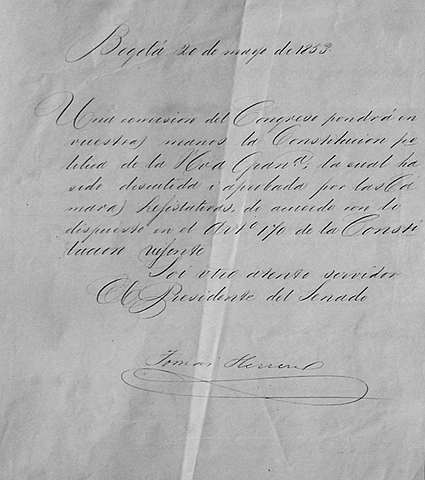 Bogotá 20 de mayo de 1853.
Una comision del Congreso pondrá en
vuestras manos la Constitucion po
lítica de la Nva Granᵃ, la cual ha
sido discutida i aprobada por las Cá
maras Lejislativas, de acuerdo con lo
dispuesto en el Artº 170 de la Consti
tucion vijente
Soi vtro atento servidor
El Presidente del Senado
Tomas Herrera